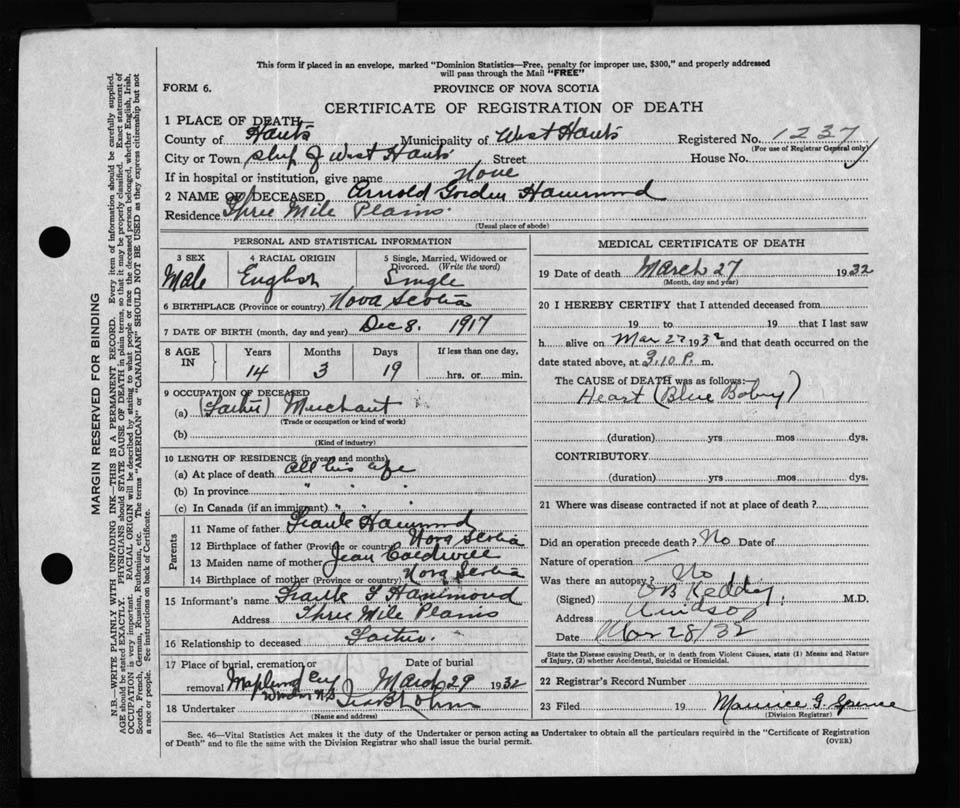 This form if placed in an envelope, marked "Dominion Statistics—Free, penalty for improper use, $300," and properly addressed
will pass through the Mail "FREE"
FORM 6.
PROVINCE OF NOVA SCOTIA
CERTIFICATE OF REGISTRATION OF DEATH
1 PLACE OF DEATH
County of Hants Municipality of West Hants Registered No. 1237
(For use of Registrar General only)
City or Town of West Hants Street House No.
If in hospital or institution, give name None
2 NAME OF DECEASED Arnold Gordon Hammond
Residence Three Mile Plains
(Usual place of abode)
PERSONAL AND STATISTICAL INFORMATION
3 SEX
Male
4 RACIAL ORIGIN
English
5 Single, Married, Widowed or
Divorced. (Write the word)
Single
6 BIRTHPLACE (Province or country) Nova Scotia
7 DATE OF BIRTH (month, day and year) Dec 8. 1917
8 AGE
IN
Years Months Days If less than one day,
14 3 19 hrs. or min.
9 OCCUPATION OF DECEASED
(a) Merchant
(Trade or occupation or kind of work)
(b)
(Kind of industry)
10 LENGTH OF RESIDENCE (in years and months)
(a) At place of death All his life
(b) In province " " "
(c) In Canada (if an immigrant) " " "
Parents
11 Name of father Frank Hammond
12 Birthplace of father (Province or country) Nova Scotia
13 Maiden name of mother Jean Caldwell
14 Birthplace of mother (Province or country) Nova Scotia
15 Informant's name Frank Hammond
Address Three Mile Plains
16 Relationship to deceased
17 Place of burial, cremation or
removal
Date of burial
March 29 1932
18 Undertaker
(Name and address)
MEDICAL CERTIFICATE OF DEATH
19 Date of death March 27 1932
(Month, day and year)
20 I HEREBY CERTIFY that I attended deceased from
19 to 19 that I last saw
h alive on Mar 27 1932 and that death occurred on the
date stated above, at 3.10 P. m.
The CAUSE of DEATH was as follows:
Heart (Blue Baby)
(duration) yrs mos dys.
CONTRIBUTORY
(duration) yrs mos dys.
21 Where was disease contracted if not at place of death?
Did an operation precede death? No Date of
Nature of operation
Was there an autopsy? No
(Signed) M.D.
Address Windsor
Date Mar 28/32
State the Disease causing Death, or in death from Violent Causes, state (1) Means and Nature
of Injury, (2) whether Accidental, Suicidal or Homicidal.
22 Registrar's Record Number
23 Filed 19 Maurice G. Spence
(Division Registrar)
Sec. 46—Vital Statistics Act makes it the duty of the Undertaker or person acting as Undertaker to obtain all the particulars required in the "Certificate of Registration
of Death" and to file the same with the Division Registrar who shall issue the burial permit.
(OVER)
MARGIN RESERVED FOR BINDING
N.B.—WRITE PLAINLY WITH UNFADING INK—THIS IS A PERMANENT RECORD. Every item of information should be carefully supplied.
AGE should be stated EXACTLY. PHYSICIANS should STATE CAUSE OF DEATH in plain terms, so that it may be properly classified. Exact statement of
OCCUPATION is very important. RACIAL ORIGIN will be described by stating to what people or race the deceased person belonged, whether English, Irish,
Scotch, French, German, Russian, Ruthenian, etc. The terms "AMERICAN" or "CANADIAN" SHOULD NOT BE USED as they express citizenship but not
a race or people. See instructions on back of Certificate.